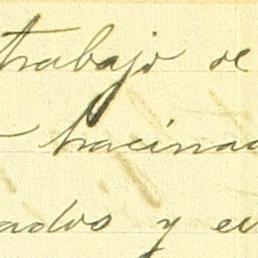 trabajo de
hacinad
ados y en